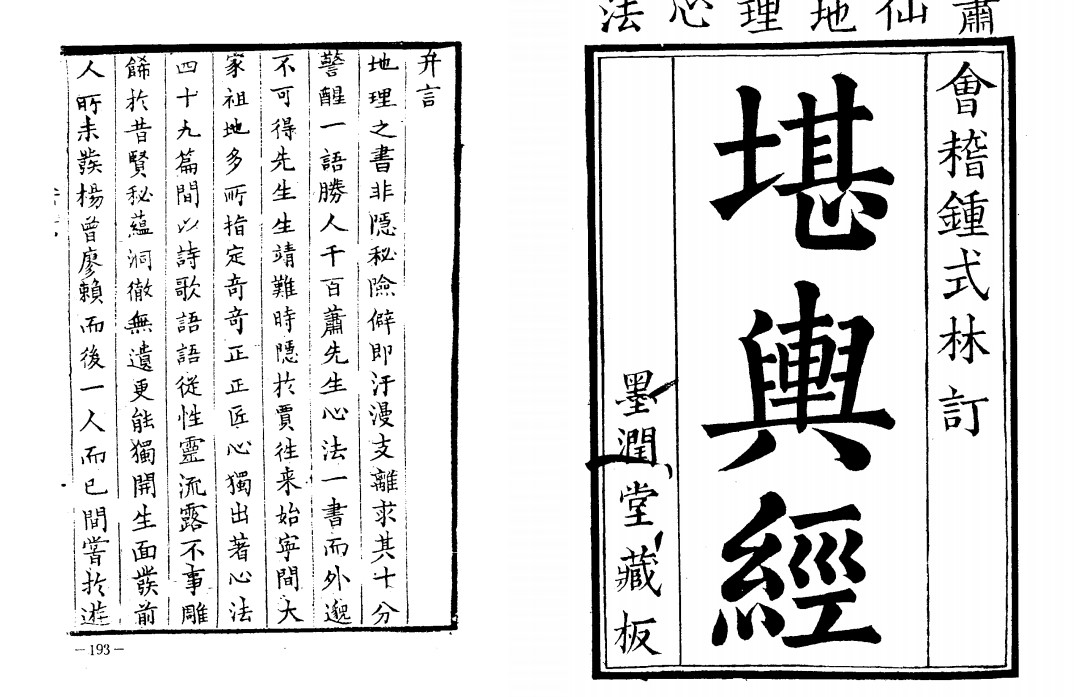 蕭仙地理心法
會稽鍾式林訂
堪輿經
墨潤堂藏板
弁言
地理之書非隱秘險僻即汗漫支離求其十分
警醒一語勝人千百蕭先生心法一書而外邈
不可得先生生靖難時隱扵賈徃来始寧間大
家祖地多所指定奇奇正正匠心獨出著心法
四十九篇間以詩歌語語從性靈流露不事雕
餙扵昔賢秘蘊洞徹無遺更能獨開生面發前
人所未發楊曾廖賴而後一人而已間嘗扵逰
—193—